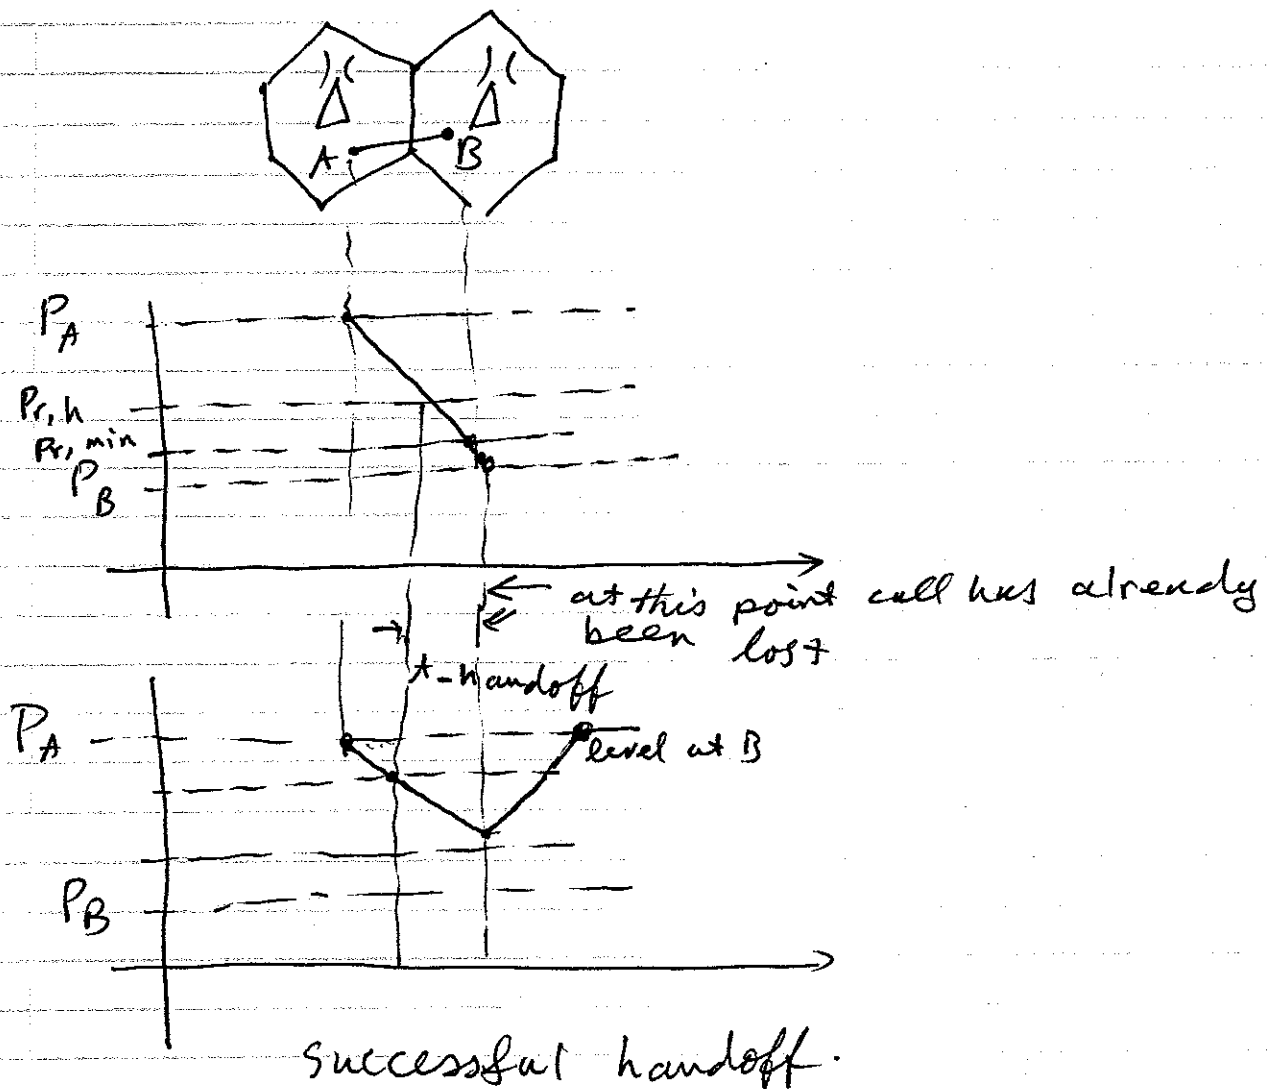 A
B
P_A
Pr,h
Pr,min
P_B
at this point call has already
been lost
t-handoff
P_A
level at B
P_B
Successful handoff.